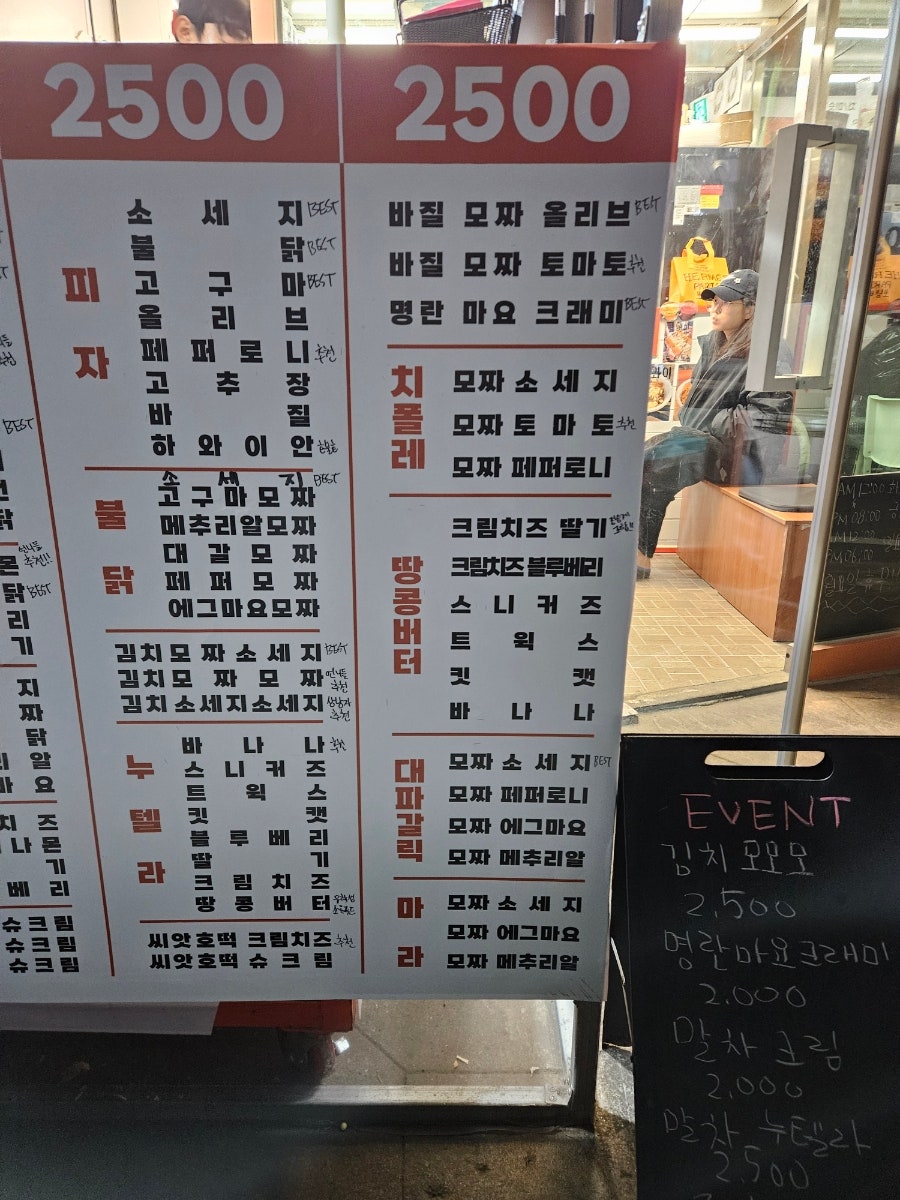 2500
피자
소세지 BEST
불닭 BEST
고구마 BEST
올리브
페퍼로니 추천
고추장
바질
하와이안
불닭
소세지 BEST
고구마모짜
메추리알모짜
대갈모짜
페퍼모짜
에그마요모짜
김치모짜소세지 BEST
김치모짜모짜 언니들 추천
김치소세지소세지 상남자 추천
누텔라
바나나 추천
스니커즈
트윅스
킷캣
블루베리
딸기
크림치즈
땅콩버터
씨앗호떡 크림치즈 추천
씨앗호떡 슈크림
2500
바질 모짜 올리브 BEST
바질 모짜 토마토 추천
명란 마요 크래미 BEST
치폴레
모짜소세지
모짜토마토 추천
모짜 페퍼로니
땅콩버터
크림치즈 딸기
크림치즈 블루베리
스니커즈
트윅스
킷캣
바나나
대파갈릭
모짜소세지 BEST
모짜 페퍼로니
모짜 에그마요
모짜 메추리알
마라
모짜소세지
모짜 에그마요
모짜 메추리알
BEST
언니들 추천!!
BEST
슈크림
슈크림
슈크림
EVENT
김치모모모
2,500
명란마요크래미
2,000
말차 크림
2,000
말차 누텔라
2,500